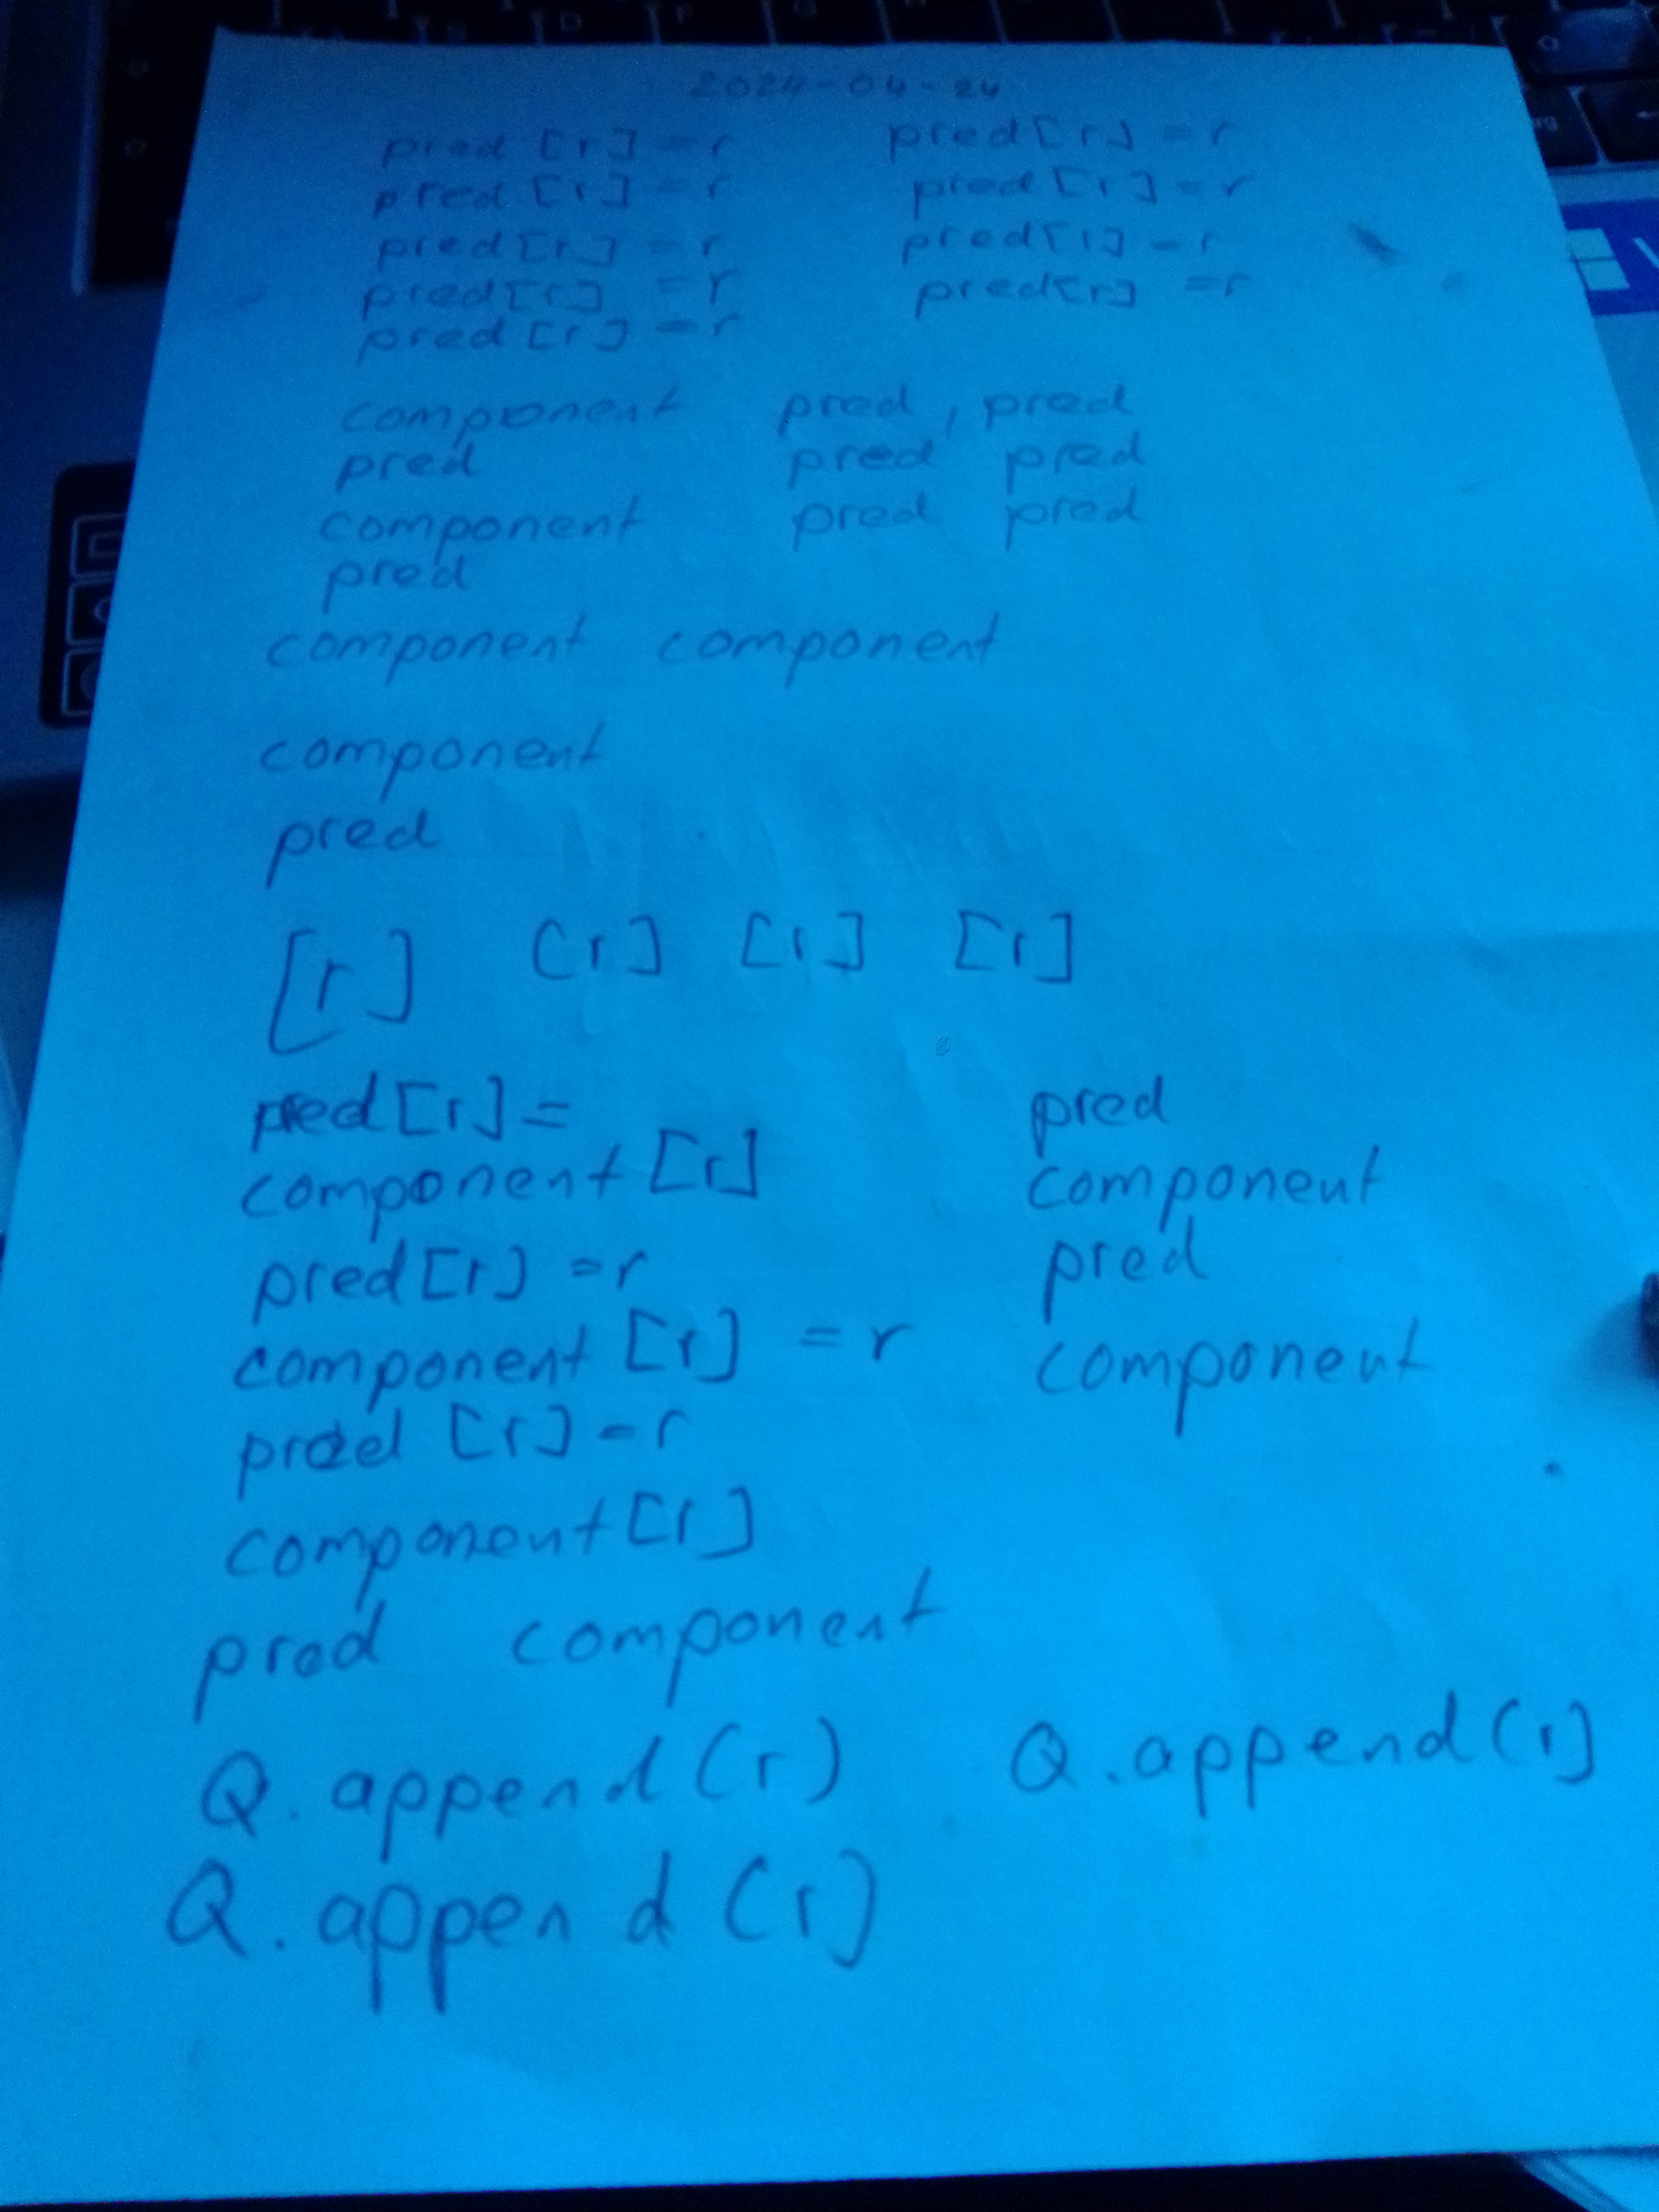 2024-04-24
pred [r] = r pred[r] = r
pred [r] = r pred [r] = r
pred [r] = r pred[r] = r
pred[r] = r pred[r] = r
pred [r] = r
component pred, pred
pred pred pred
component pred pred
pred
component component
component
pred
[r] [r] [r] [r]
pred[r] = pred
component [r] component
pred[r] = r pred
component [r] = r component
pred [r] = r
component[r]
pred component
Q.append(r) Q.append(r]
Q.append(r]